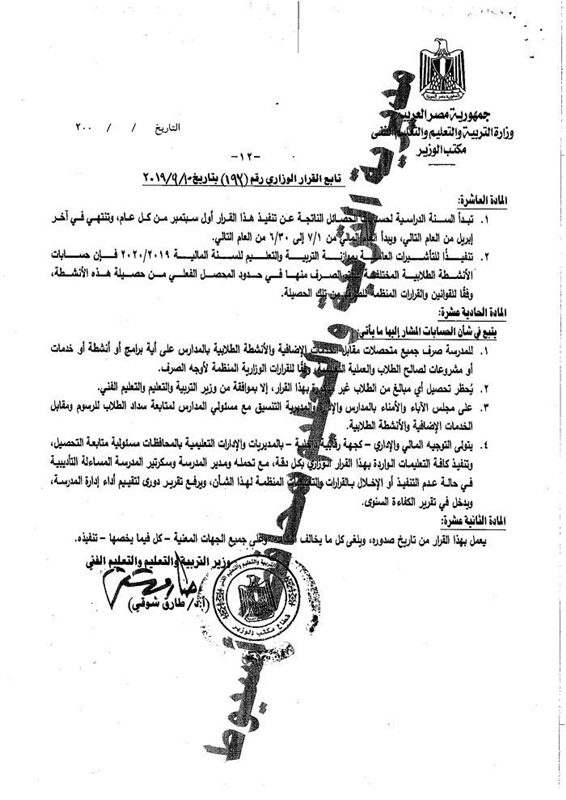 جمهورية مصر العربية
وزارة التربية والتعليم والتعليم الفنى
مكتب الوزير
التاريخ / / ٢٠٠
-١٢-
تابع القرار الوزاري رقم (١٩٢) بتاريخ ٢٠١٩/٩/١٠
المادة العاشرة:
١. تبدأ السنة الدراسية الحصائل الناتجة عن تنفيذ هذا القرار أول سبتمبر من كل عام، وتنتهي في آخر
إبريل من العام التالي، ويبدأ المالي من ٧/١ إلى ٦/٣٠ من العام التالي.
٢. تنفيذًا للتأشيرات بموازنة التربية والتعليم للسنة المالية ٢٠٢٠/٢٠١٩ فإن حسابات
الأنشطة الطلابية المختلفة الصرف منها في حدود المحصل الفعلي من حصيلة هذه الأنشطة،
وفقًا للقوانين والقرارات المنظمة من تلك الحصيلة.
المادة الحادية عشرة:
يتبع في شأن الحسابات المشار إليها ما يأتى:
١. للمدرسة صرف جميع متحصلات مقابل الخدمات الإضافية والأنشطة الطلابية بالمدارس على أية برامج أو أنشطة أو خدمات
أو مشروعات لصالح الطلاب والعملية وفقًا للقرارات الوزارية المنظمة لأوجه الصرف.
٢. يُحظر تحصيل أي مبالغ من الطلاب غير بهذا القرار، إلا بموافقة من وزير التربية والتعليم والتعليم الفني.
٣. على مجلس الآباء والأمناء بالمدارس والمديرية التنسيق مع مسئولي المدارس لمتابعة سداد الطلاب للرسوم ومقابل
الخدمات الإضافية والأنشطة الطلابية.
٤. يتولى التوجيه المالي والإداري – كجهة رقابية – بالمديريات والإدارات التعليمية بالمحافظات مسئولية متابعة التحصيل،
وتنفيذ كافة التعليمات الواردة بهذا القرار الوزاري بكل دقة، مع تحمله ومدير المدرسة وسكرتير المدرسة المساءلة التأديبية
في حالة عدم التنفيذ أو الإخلال بالقرارات المنظمة لهذا الشأن، ويرفع تقرير دورى لتقييم أداء إدارة المدرسة،
ويدخل في تقرير الكفاءة السنوى.
المادة الثانية عشرة:
يعمل بهذا القرار من تاريخ صدوره، ويلغى كل ما يخالف وعلى جميع الجهات المعنية – كل فيما يخصها – تنفيذه.
وزير التربية والتعليم والتعليم الفني
(أ.د/ طارق شوقي)
قطاع مكتب الوزير
مديرية التربية والتعليم محافظة أسيوط